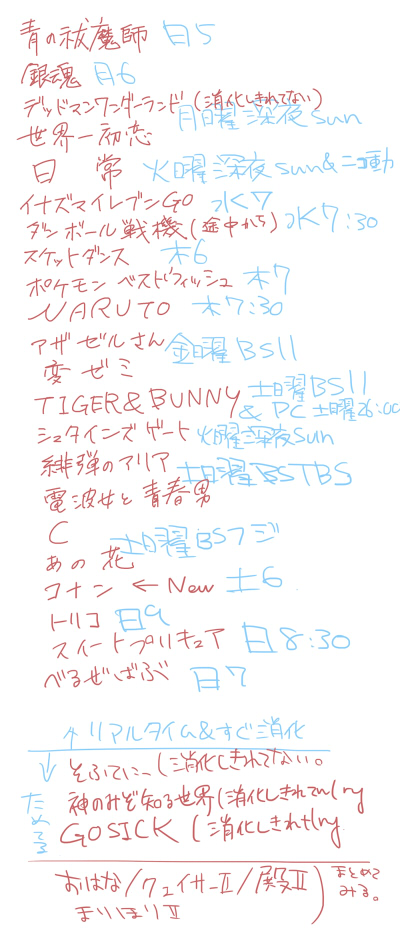 青の祓魔師 日5
銀魂 月6
デッドマンワンダーランド(消化しきれてない)
世界一初恋 月曜深夜sun
日常 火曜深夜sun&ニコ動
イナズマイレブンGO 水7
ダンボール戦機(途中から) 水7:30
スケットダンス 木6
ポケモン ベストウィッシュ 木7
NARUTO 木7:30
アザゼルさん 金曜BS11
変ゼミ
TIGER&BUNNY 土曜BS11
& PC 土曜26:00
シュタインズゲート 火曜深夜sun
緋弾のアリア 土曜BSTBS
電波女と青春男
C 土曜BSフジ
あの花
コナン ← New 土6
トリコ 日9
スイートプリキュア 日8:30
べるぜばぶ 日7
↑リアルタイム&すぐ消化
↓ためてる
そふてにっ(消化しきれてない。
神のみぞ知る世界(消化しきれてn(ry
GOSICK (消化しきれt(ry
おはな/クェイサーⅡ/殿Ⅱ
まりほりⅡ
) まとめてみる。